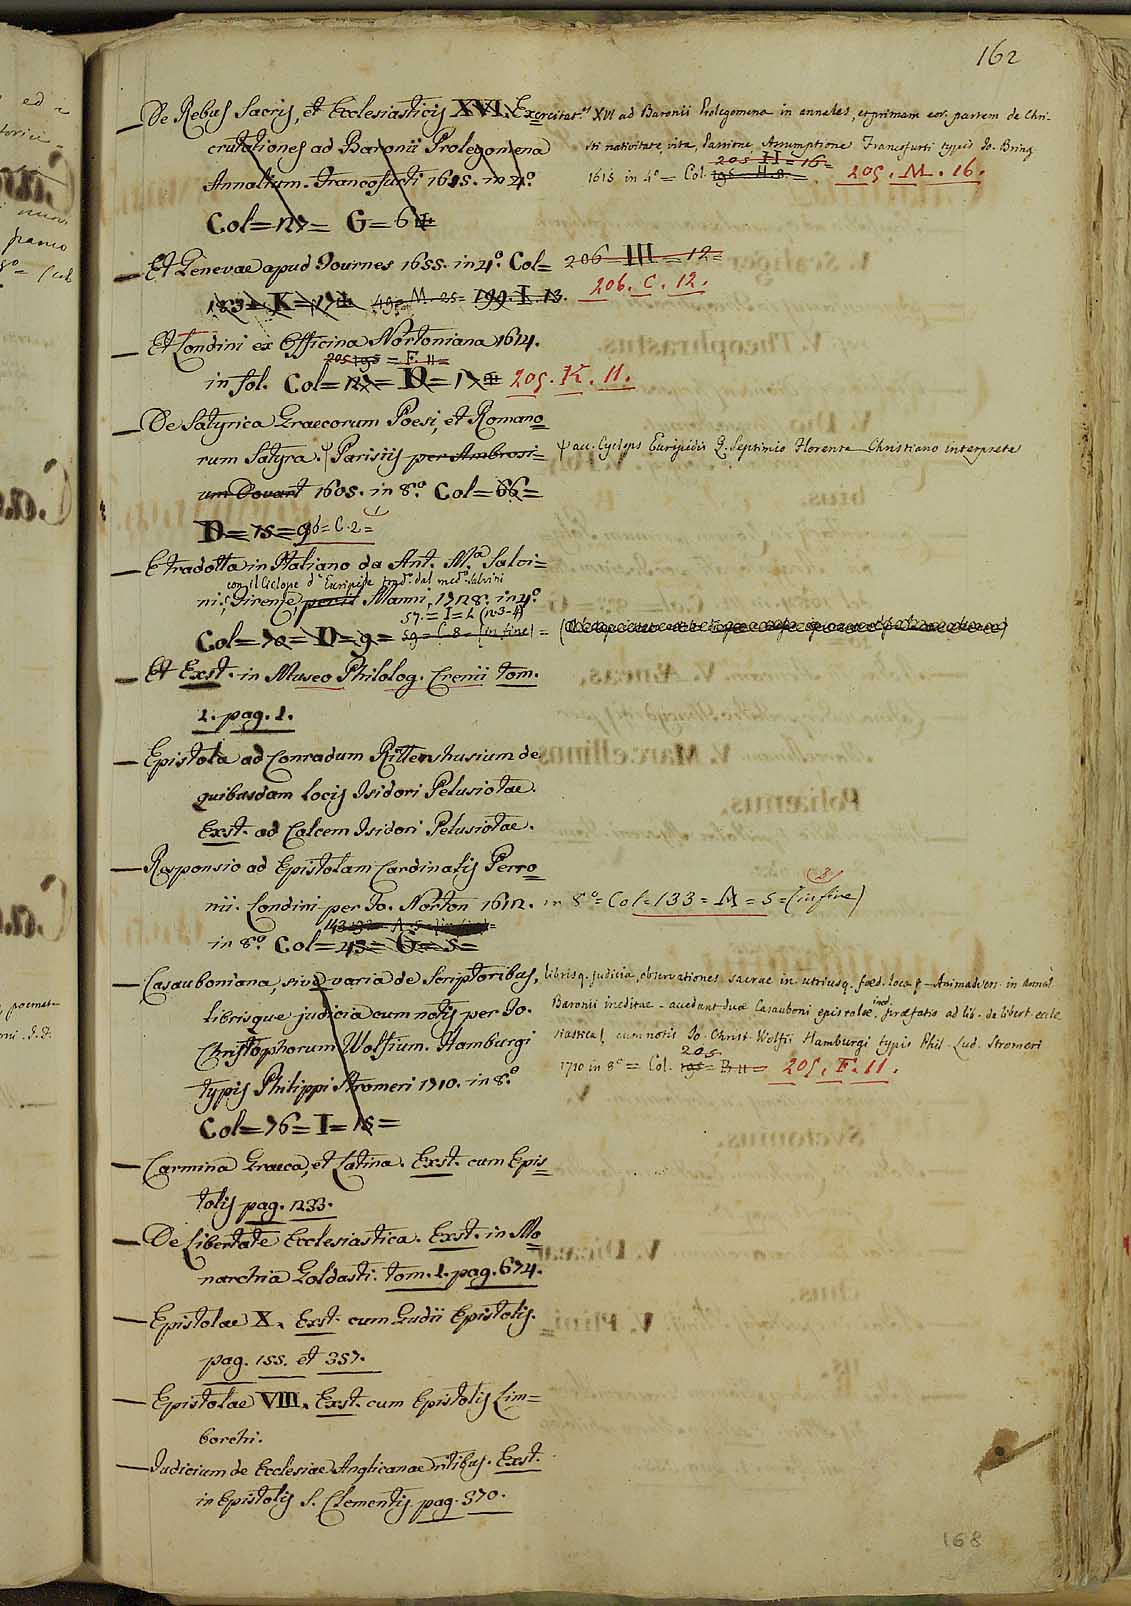 162
— De Rebus Sacris, et Ecclesiasticis XVI. Exercitat.s XVI ad Baronii Prolegomena in annales, et primam eor. partem de Chri-
crutationes ad Baronii Prolegomena
sti nativitate, vita, Passione, Assumptione Francofurti typis Jo. Bring
Annalium. Francofurti 1615. in 4.o
205 = H = 16 =
1615 in 4o = Col. 195 = H. 8. = 205. M. 16.
Col = 127 = G = 6
— Et Genevae apud Tournes 1655. in 4.o Col = 206 = III = 12 =
183 = K = 17 = M. 25 = 199. I. 13. 206. C. 12.
— Et Londini ex Officina Nortoniana 1614.
205 195 = F. 11 =
in fol. Col = 127 = D = 17 = 205. K. 11.
— De Satyrica Graecorum Poesi, et Romano
rum Satyra. Parisiis per Ambrosi= ψ au. Cyclops Euripidis Q. Septimio Florente Christiano interprete
um Drouart 1605. in 8.o Col = 66 =
D = 75 = 96 = C. 2 =
— E tradotta in Italiano da Ant. M.a Salvi=
con il Ciclope d' Euripide trad.o dal med.o Salvini
ni. Firenze, per il Manni, 1728. in 4.o
57. = I = 2 (n. 3-4)
Col = 70 = D = 9 = 59 = C. 8 = (in fine) =
— Et Exst. in Museo Philolog. Crenii tom.
1. pag. 1.
— Epistola ad Conradum Rittershusium de
quibusdam locis Isidori Pelusiotae.
Exst. ad Calcem Isidori Pelusiotae.
— Responsio ad Epistolam Cardinalis Perro
nii. Londini per Jo. Norton 1612. in 8o = Col = 133 = A = 5 = (in fine)
in 8.o Col = 43 = G = 5 =
— Casauboniana, sive varia de Scriptoribus, librisq. judicia, observationes sacrae in utriusq. foed. loca & — Animadvers. in annal
librisque judicia cum notis per Jo.
Baronii ineditae - accedunt duae Casauboni epistolae ined. praefatio ad lib. de libert. eccle
Christophorum Wolfium. Hamburgi
siastica, cum notis Jo. Christ. Wolfii Hamburgi typis Phil. Lud. Stromeri
typis Philippi Stromeri 1710. in 8.o
205
1710 in 8o = Col. 195 = B 11 = 205. F. 11.
Col = 76 = I = 15 =
— Carmina Graeca, et Latina. Exst. cum Epis
tolis pag. 1233.
— De Libertate Ecclesiastica. Exst. in Mo
narchia Goldasti. tom. 1. pag. 674.
— Epistolae X. Exst. cum Gudii Epistolis.
pag. 155. et 357.
— Epistolae VIII. Exst. cum Epistolis Lim=
borchi.
— Judicium de Ecclesiae Anglicanae ritibus. Exst.
in Epistolis S. Clementis pag. 370.
168